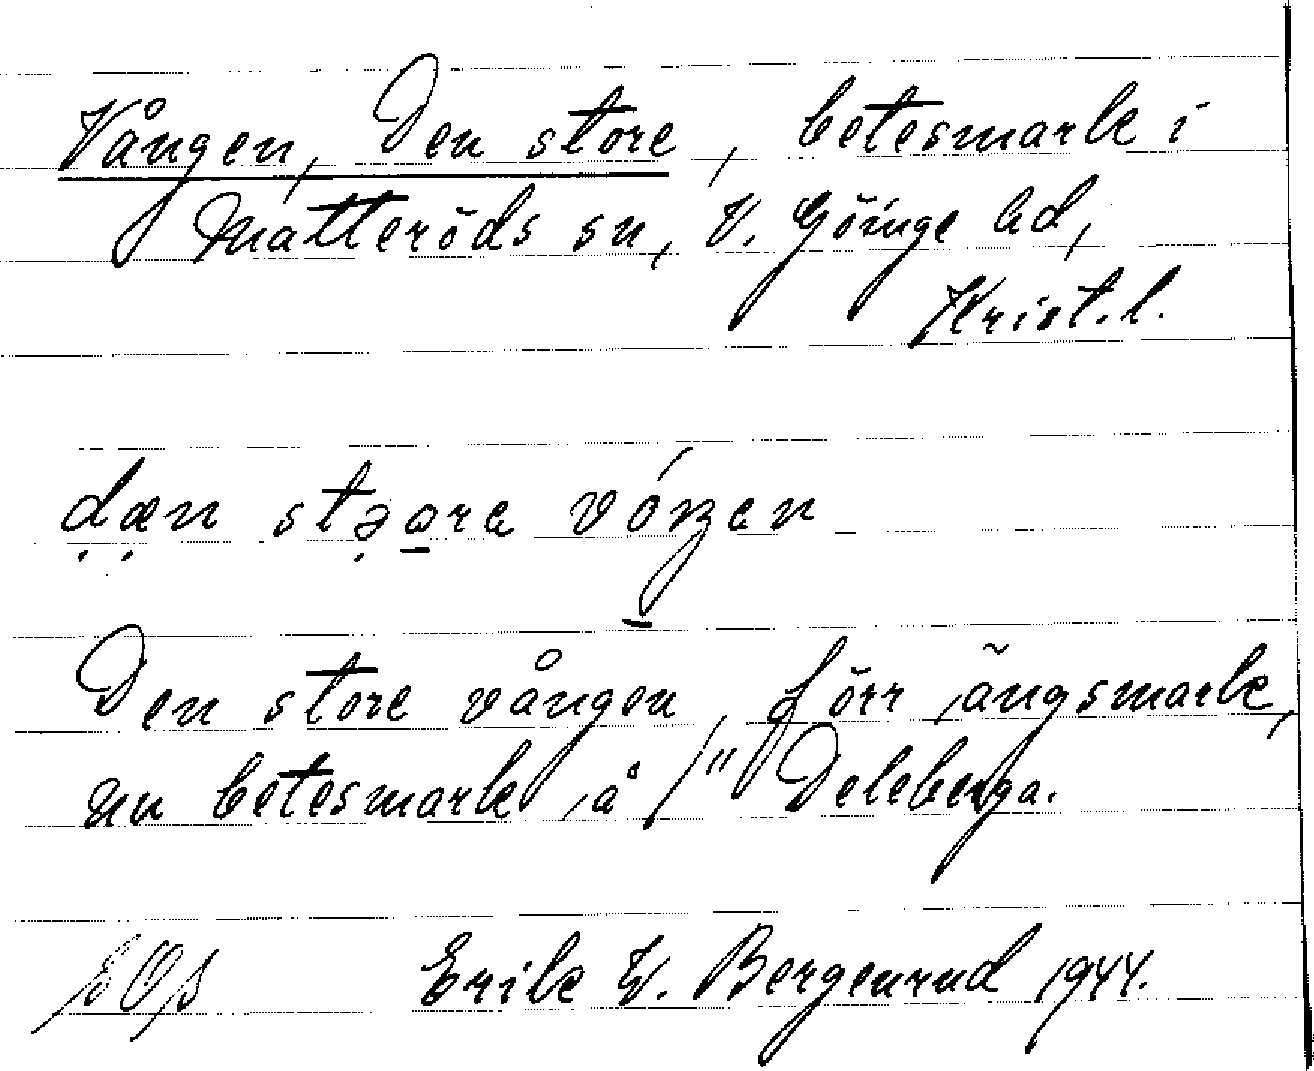 Vången, Den store, betesmark i
Matteröds sn, V. Göinge hd,
Krist. l.
dæn stəǫre vóŋen
Den store vången, förr ängsmark,
nu betesmark, å 1" Deleberga.
Erik W. Bergenrud 1944.